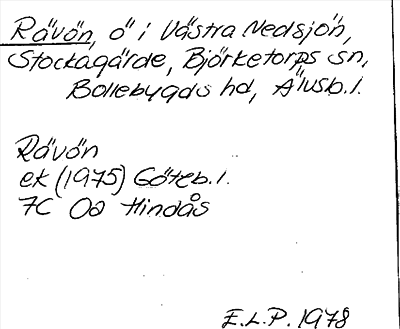 Rävön, ö i Västra Nedsjön,
Stockagärde, Björketorps sn,
Bollebygds hd, Älvsb.l.
Rävön
ek (1975) Göteb.l.
7C 0a Hindås
E.L.P. 1978